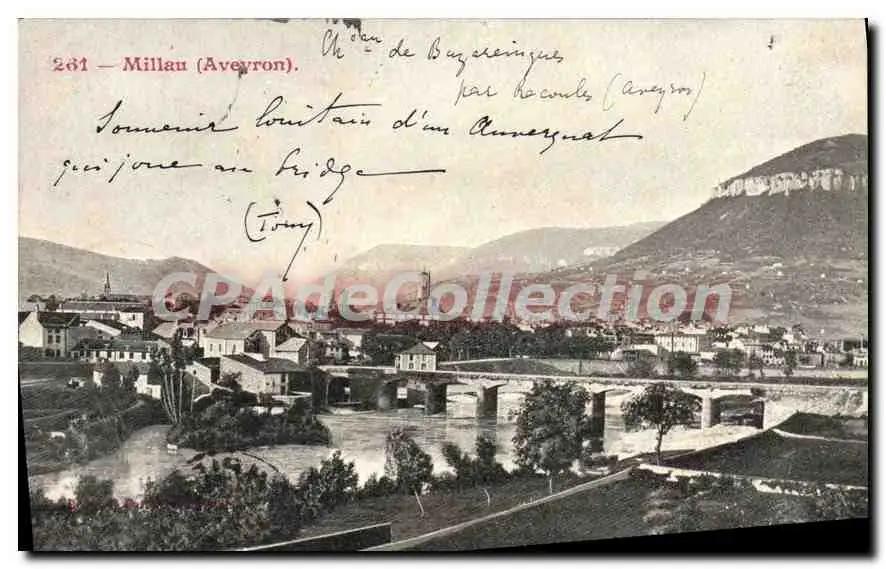 261 — Millau (Aveyron).
Chau de Buzareingues
par Recoules (Aveyron)
Souvenir lointain d'un Auvergnat
qui joue au bridge
(Tony)
CPACollection.com